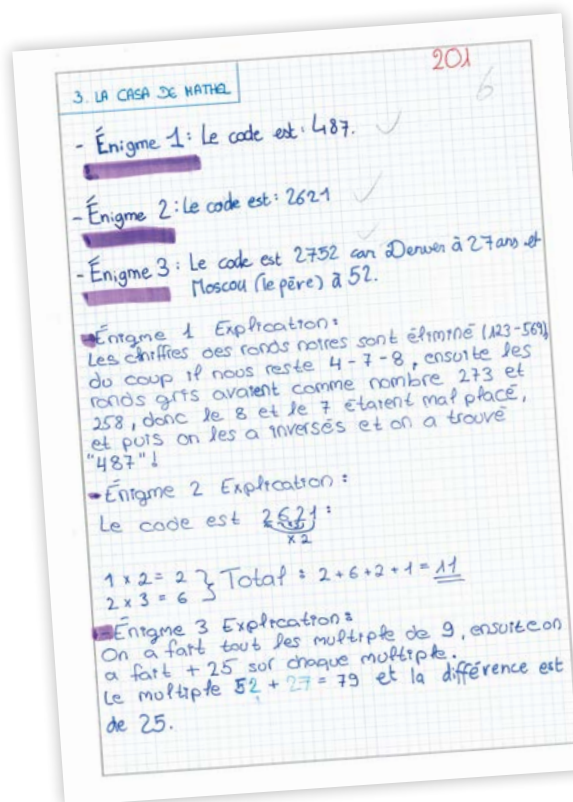 201
6
3. LA CASA DE MATHEL
- Énigme 1: Le code est: 487.
- Énigme 2: Le code est: 2621
- Énigme 3: Le code est 2752 car Denver à 27 ans et
Moscou (le père) à 52.
- Énigme 1 Explication:
Les chiffres des ronds noires sont éliminé (123-569)
du coup il nous reste 4-7-8, ensuite les
ronds gris avaient comme nombre 273 et
258, donc le 8 et le 7 étaient mal placé,
et puis on les a inversés et on a trouvé
"487"!
- Énigme 2 Explication:
Le code est 2621:
x2
1 x 2 = 2 } Total: 2+6+2+1 = 11
2 x 3 = 6
- Énigme 3 Explication:
On a fait tout les multiple de 9, ensuite on
a fait + 25 sur chaque multiple.
Le multiple 52 + 27 = 79 et la différence est
de 25.